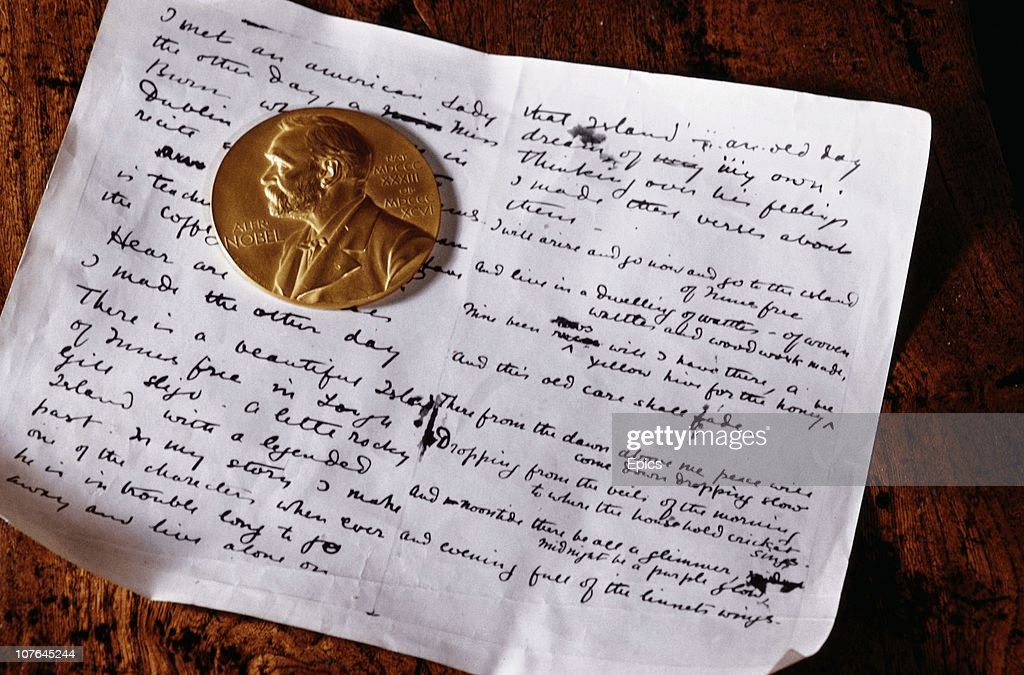 I met an american Lady
the other day, a Miss
Brown wh in
Dublin
recite
is teach
the coffe an
Hear are
I made the other day
There is a beautiful Isla
of Innis free in Lough
Gill sligo A little rocky
Island with a legended
past. In my story I make
one of the charecters when ever
he is in trouble long to go
away and live alone on
ALFR.
NOBEL
NAT.
MDCCC
XXXIII
OB.
MDCCC
XCVI
that Island" – an old day
dream of my my own.
Thinking over his feelings
I made these verses about
them –
I will arise and go now and go to the island
of Innis free
and live in a dwelling of wattles – of woven
wattles and wood work made,
Nine been rows will I have there, a
yellow hive for the honey
bee
And this old care shall fade
There from the dawn above me peace will
come down dropping slow
Dropping from the veils of the morning
to where the household cricket
sings.
And noontide there be all a glimmer,
midnight be a purple glow,
and evening full of the linnets wings.
gettyimages®
Epics
107645244